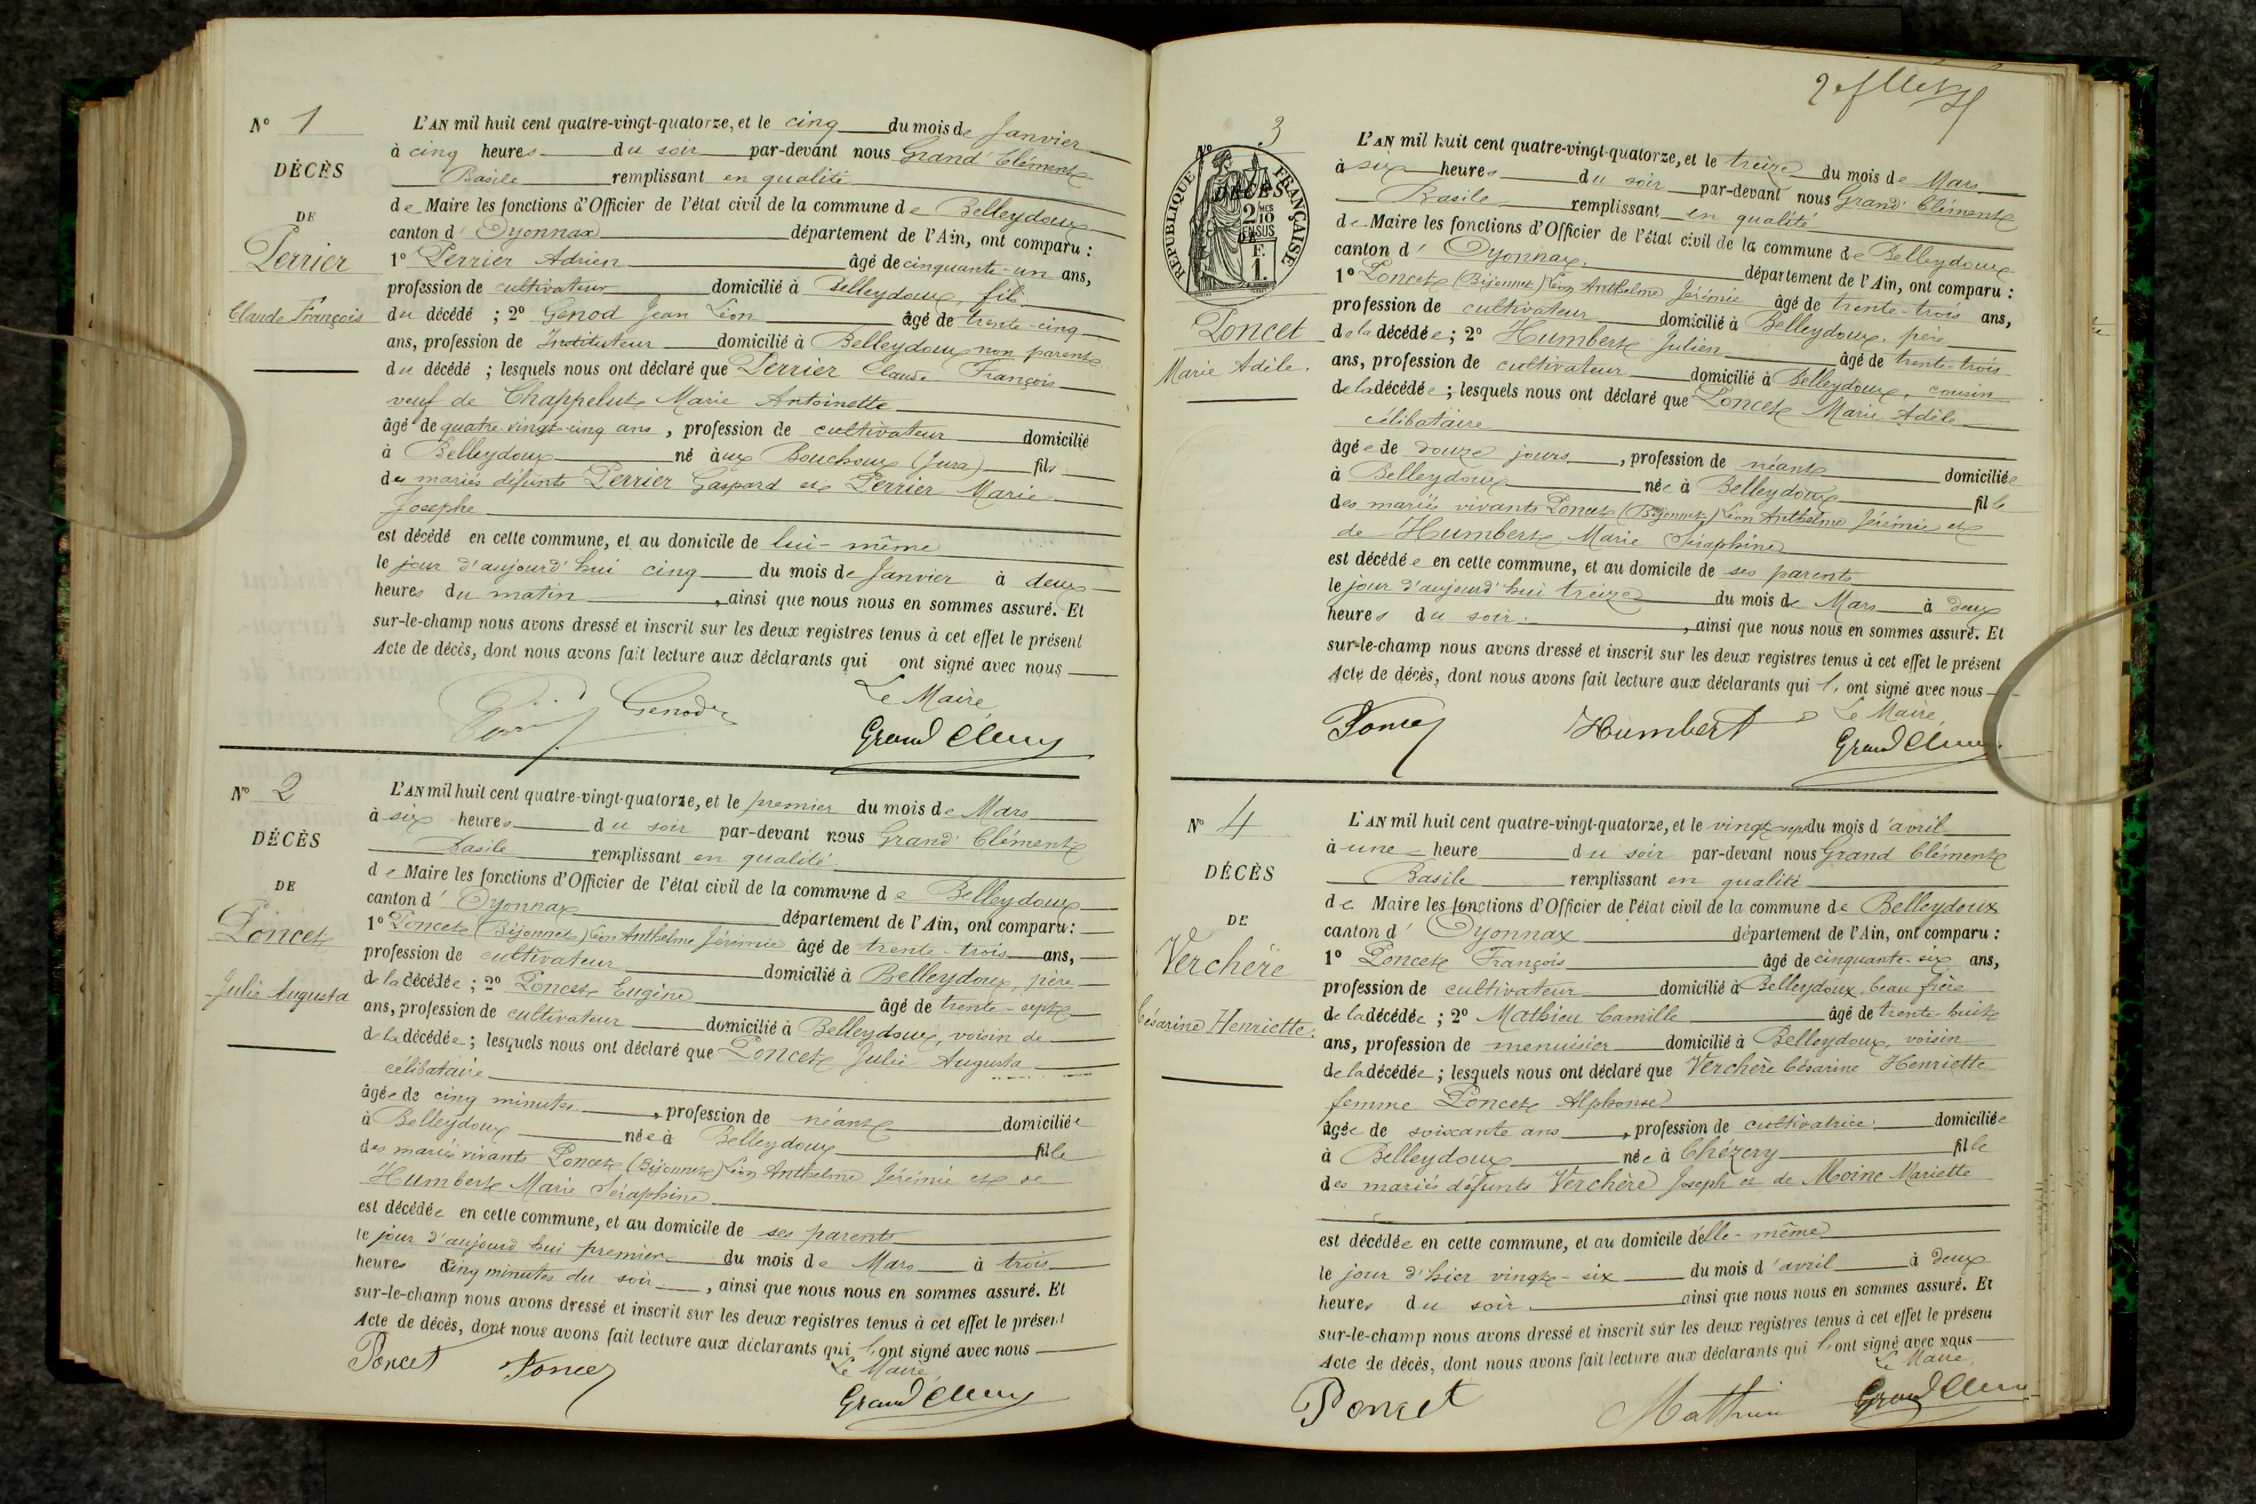 N° 1
DÉCÈS
DE
Perrier
Claude François
L'AN mil huit cent quatre-vingt-quatorze, et le cinq du mois de Janvier
à cinq heures du soir par-devant nous Grand Clément
Basile remplissant en qualité
de Maire les fonctions d'Officier de l'état civil de la commune de Belleydoux
canton d'Oyonnax département de l'Ain, ont comparu :
1° Perrier Adrien âgé de cinquante-un ans,
profession de cultivateur domicilié à Belleydoux, fils
du décédé ; 2° Genod Jean Léon âgé de trente-cinq
ans, profession de Instituteur domicilié à Belleydoux non parent
du décédé ; lesquels nous ont déclaré que Perrier Claude François
veuf de Chappelut Marie Antoinette
âgé de quatre vingt-cinq ans, profession de cultivateur domicilié
à Belleydoux né aux Bouchoux (Jura) fils
des mariés défunts Perrier Gaspard et Perrier Marie
Josephe
est décédé en cette commune, et au domicile de lui-même
le jour d'aujourd'hui cinq du mois de Janvier à deux
heures du matin, ainsi que nous nous en sommes assuré. Et
sur-le-champ nous avons dressé et inscrit sur les deux registres tenus à cet effet le présent
Acte de décès, dont nous avons fait lecture aux déclarants qui ont signé avec nous
Le Maire,
Genod
Grand Clém
N° 2
DÉCÈS
DE
Poncet
Julie Augusta
L'AN mil huit cent quatre-vingt-quatorze, et le premier du mois de Mars
à six heures du soir par-devant nous Grand Clément
Basile remplissant en qualité
de Maire les fonctions d'Officier de l'état civil de la commune de Belleydoux
canton d'Oyonnax département de l'Ain, ont comparu :
1° Poncet (Bijonnet) Léon Anthelme Jérémie âgé de trente-trois ans,
profession de cultivateur domicilié à Belleydoux, père
de la décédée ; 2° Poncet Eugène âgé de trente-sept
ans, profession de cultivateur domicilié à Belleydoux, voisin de
de la décédée ; lesquels nous ont déclaré que Poncet Julie Augusta
célibataire
âgée de cinq minutes, profession de néant domiciliée
à Belleydoux née à Belleydoux fille
des mariés vivants Poncet (Bijonnet) Léon Anthelme Jérémie et de
Humbert Marie Séraphine
est décédée en cette commune, et au domicile de ses parents
le jour d'aujourd'hui premier du mois de Mars à trois
heures cinq minutes du soir, ainsi que nous nous en sommes assuré. Et
sur-le-champ nous avons dressé et inscrit sur les deux registres tenus à cet effet le présent
Acte de décès, dont nous avons fait lecture aux déclarants qui l'ont signé avec nous
Le Maire,
Poncet Poncet
Grand Clém
N° 3
DÉCÈS
DE
RÉPUBLIQUE FRANÇAISE
2/10 EN SUS
F. 1.
Poncet
Marie Adèle.
L'AN mil huit cent quatre-vingt-quatorze, et le treize du mois de Mars
à six heures du soir par-devant nous Grand Clément
Basile remplissant en qualité
de Maire les fonctions d'Officier de l'état civil de la commune de Belleydoux
canton d'Oyonnax. département de l'Ain, ont comparu :
1° Poncet (Bijonnet) Léon Anthelme Jérémie âgé de trente-trois ans,
profession de cultivateur domicilié à Belleydoux, père
de la décédée ; 2° Humbert Julien âgé de trente-trois
ans, profession de cultivateur domicilié à Belleydoux, cousin
de la décédée ; lesquels nous ont déclaré que Poncet Marie Adèle
célibataire
âgée de douze jours, profession de néant domiciliée
à Belleydoux née à Belleydoux fille
des mariés vivants Poncet (Bijonnet) Léon Anthelme Jérémie et
de Humbert Marie Séraphine
est décédée en cette commune, et au domicile de ses parents
le jour d'aujourd'hui treize du mois de Mars à deux
heures du soir, ainsi que nous nous en sommes assuré. Et
sur-le-champ nous avons dressé et inscrit sur les deux registres tenus à cet effet le présent
Acte de décès, dont nous avons fait lecture aux déclarants qui l'ont signé avec nous
Le Maire,
Poncet Humbert
Grand Clém
N° 4
DÉCÈS
DE
Verchère
Césarine Henriette.
L'AN mil huit cent quatre-vingt-quatorze, et le vingt sept du mois d'avril
à une heure du soir par-devant nous Grand Clément
Basile remplissant en qualité
de Maire les fonctions d'Officier de l'état civil de la commune de Belleydoux
canton d'Oyonnax département de l'Ain, ont comparu :
1° Poncet François âgé de cinquante-six ans,
profession de cultivateur domicilié à Belleydoux, beau frère
de la décédée ; 2° Mathieu Camille âgé de trente-huit
ans, profession de menuisier domicilié à Belleydoux, voisin
de la décédée ; lesquels nous ont déclaré que Verchère Césarine Henriette
femme Poncet Alphonse
âgée de soixante ans, profession de cultivatrice domiciliée
à Belleydoux née à Chézery fille
des mariés défunts Verchère Joseph et de Moine Mariette
est décédée en cette commune, et au domicile d'elle-même
le jour d'hier vingt-six du mois d'avril à deux
heures du soir. ainsi que nous nous en sommes assuré. Et
sur-le-champ nous avons dressé et inscrit sur les deux registres tenus à cet effet le présent
Acte de décès, dont nous avons fait lecture aux déclarants qui l'ont signé avec nous
Le Maire,
Poncet Mathieu Grand Clém